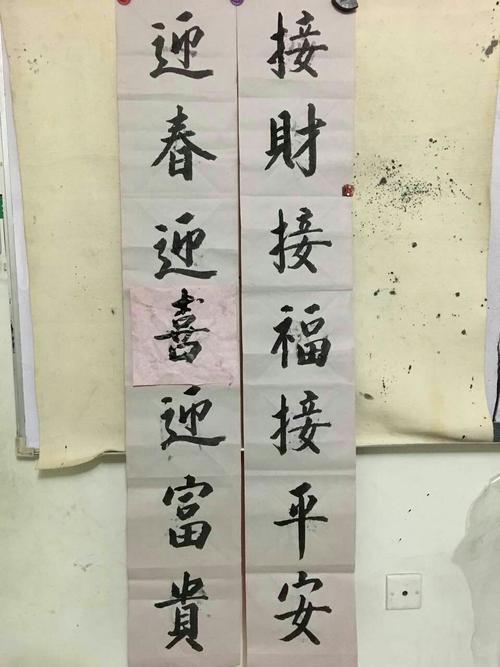 接財接福接平安
迎春迎喜迎富貴